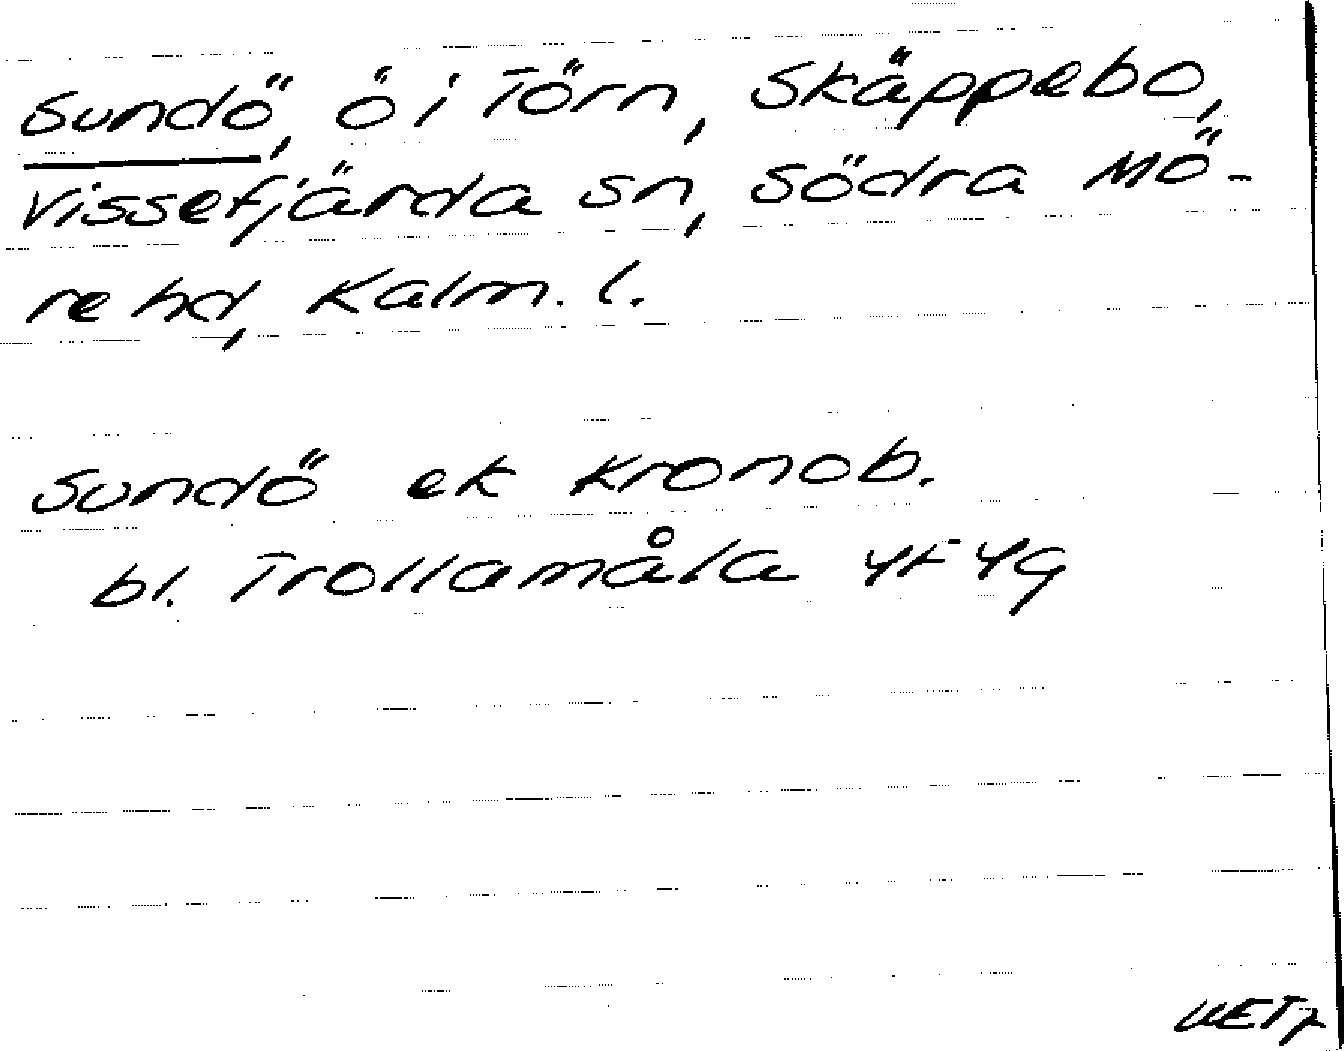 Sundö, ö i Törn, Skäppebo,
Vissefjärda sn, Södra Mö-
re hd, Kalm. l.
Sundö ek Kronob.
bl. Trollamåla 4F 4g